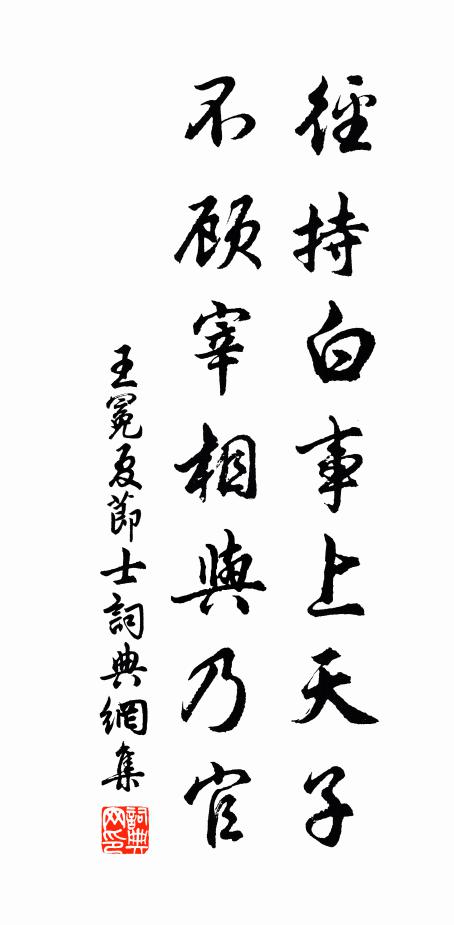 徑持白事上天子
不顧宰相與乃官
王冕夏節士詞典網集
詞典网印